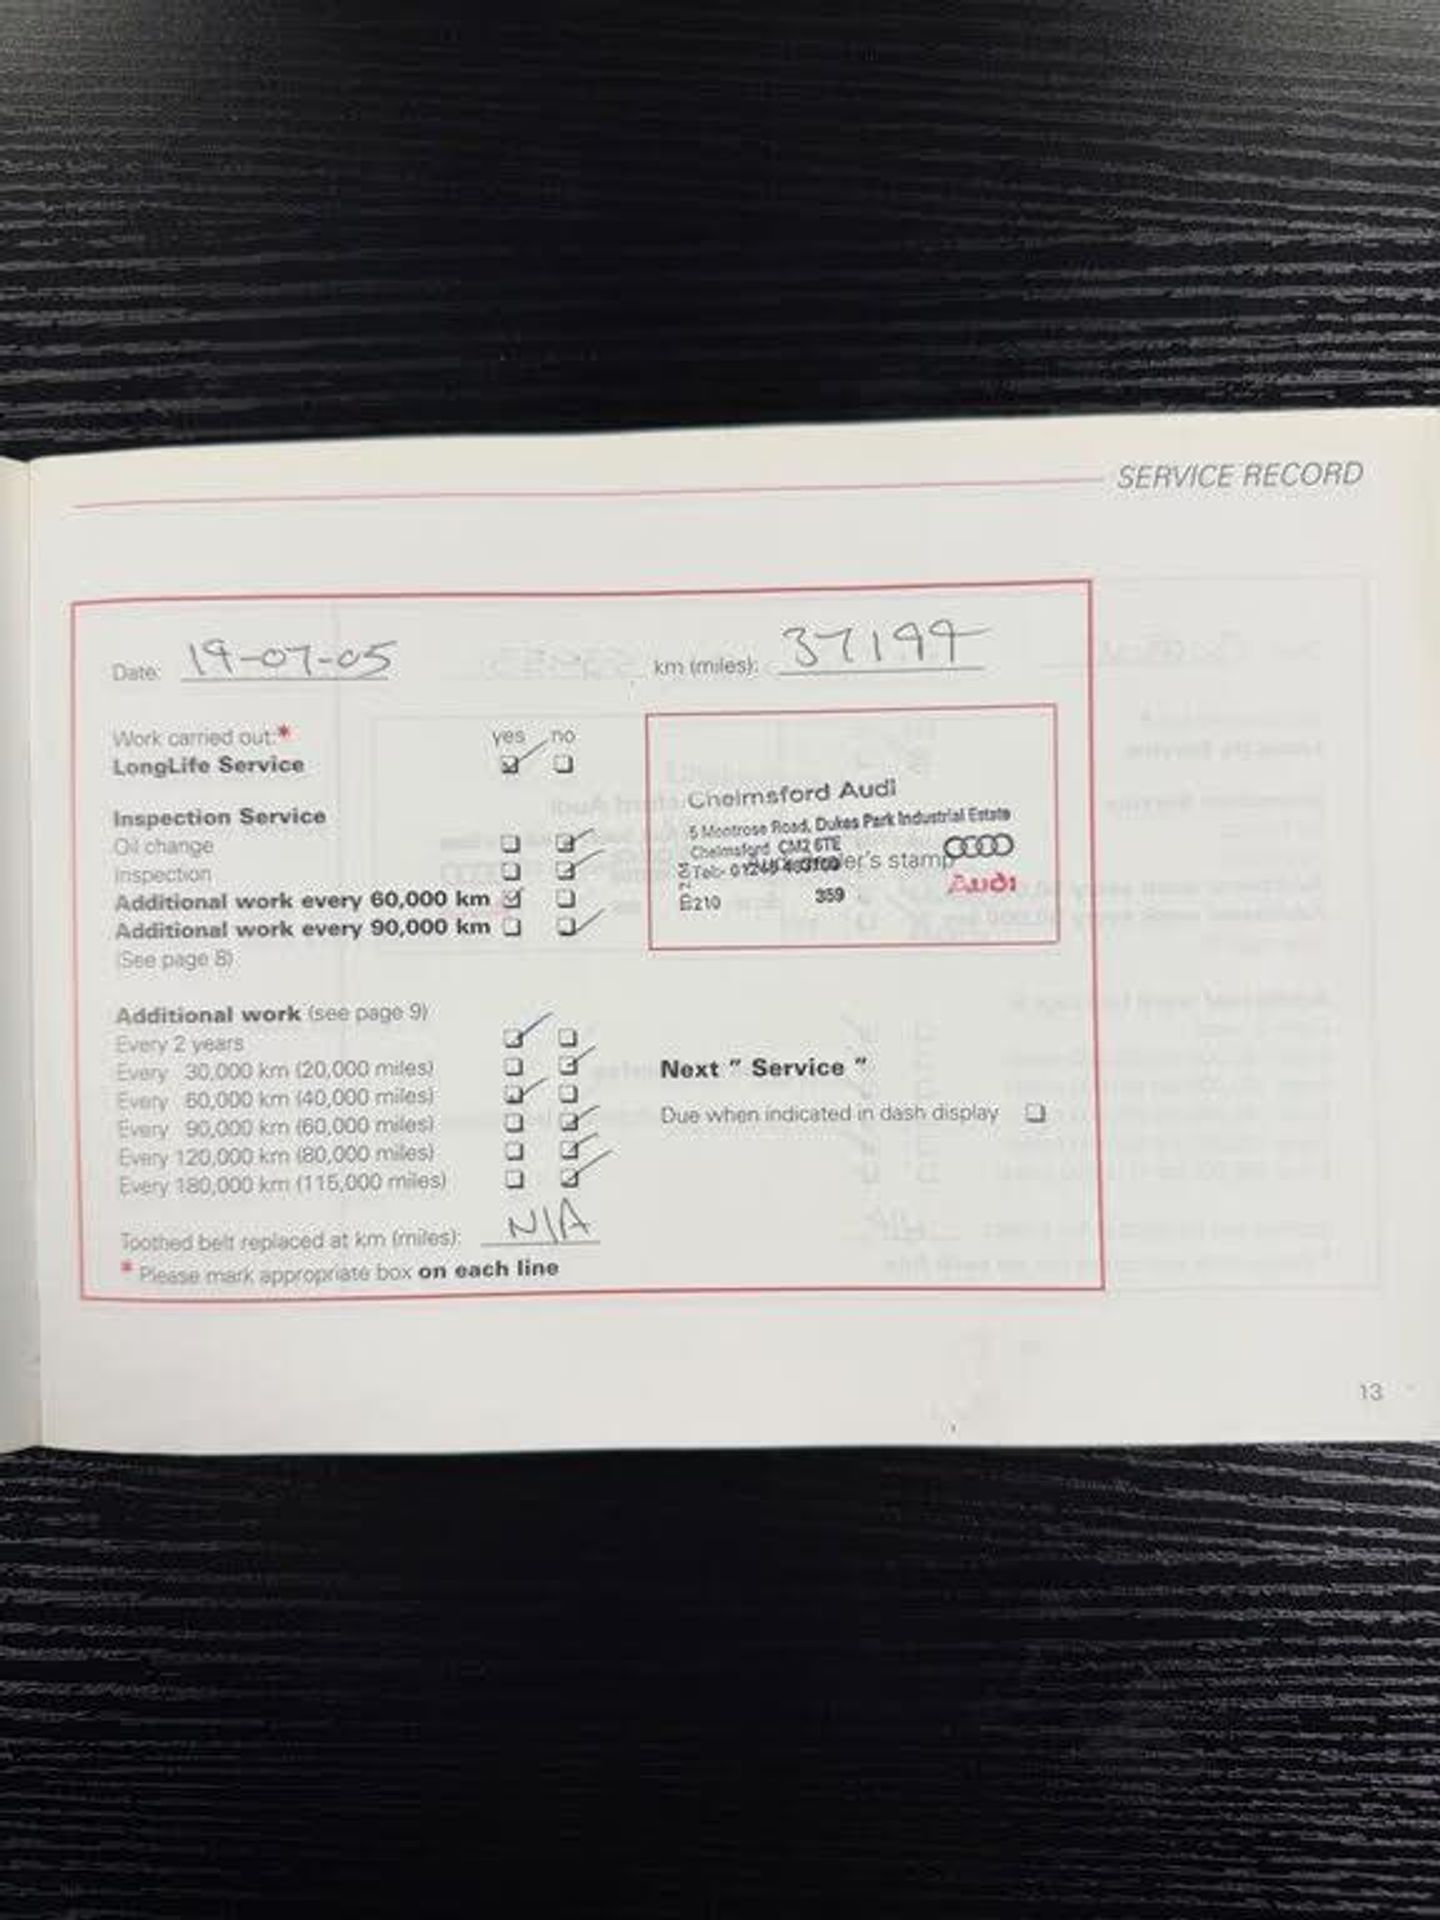 SERVICE RECORD
Date: 19-07-05 km (miles): 37199
Work carried out:* yes no
LongLife Service
Inspection Service
Oil change
Inspection
Additional work every 60,000 km
Additional work every 90,000 km
(See page 8)
Chelmsford Audi
5 Montrose Road, Dukes Park Industrial Estate
Chelmsford CM2 6TE
Tel:
dealer's stamp
Audi
210 359
Additional work (see page 9)
Every 2 years
Every 30,000 km (20,000 miles)
Every 60,000 km (40,000 miles)
Every 90,000 km (60,000 miles)
Every 120,000 km (80,000 miles)
Every 180,000 km (115,000 miles)
Next " Service "
Due when indicated in dash display
Toothed belt replaced at km (miles): N/A
* Please mark appropriate box on each line
13